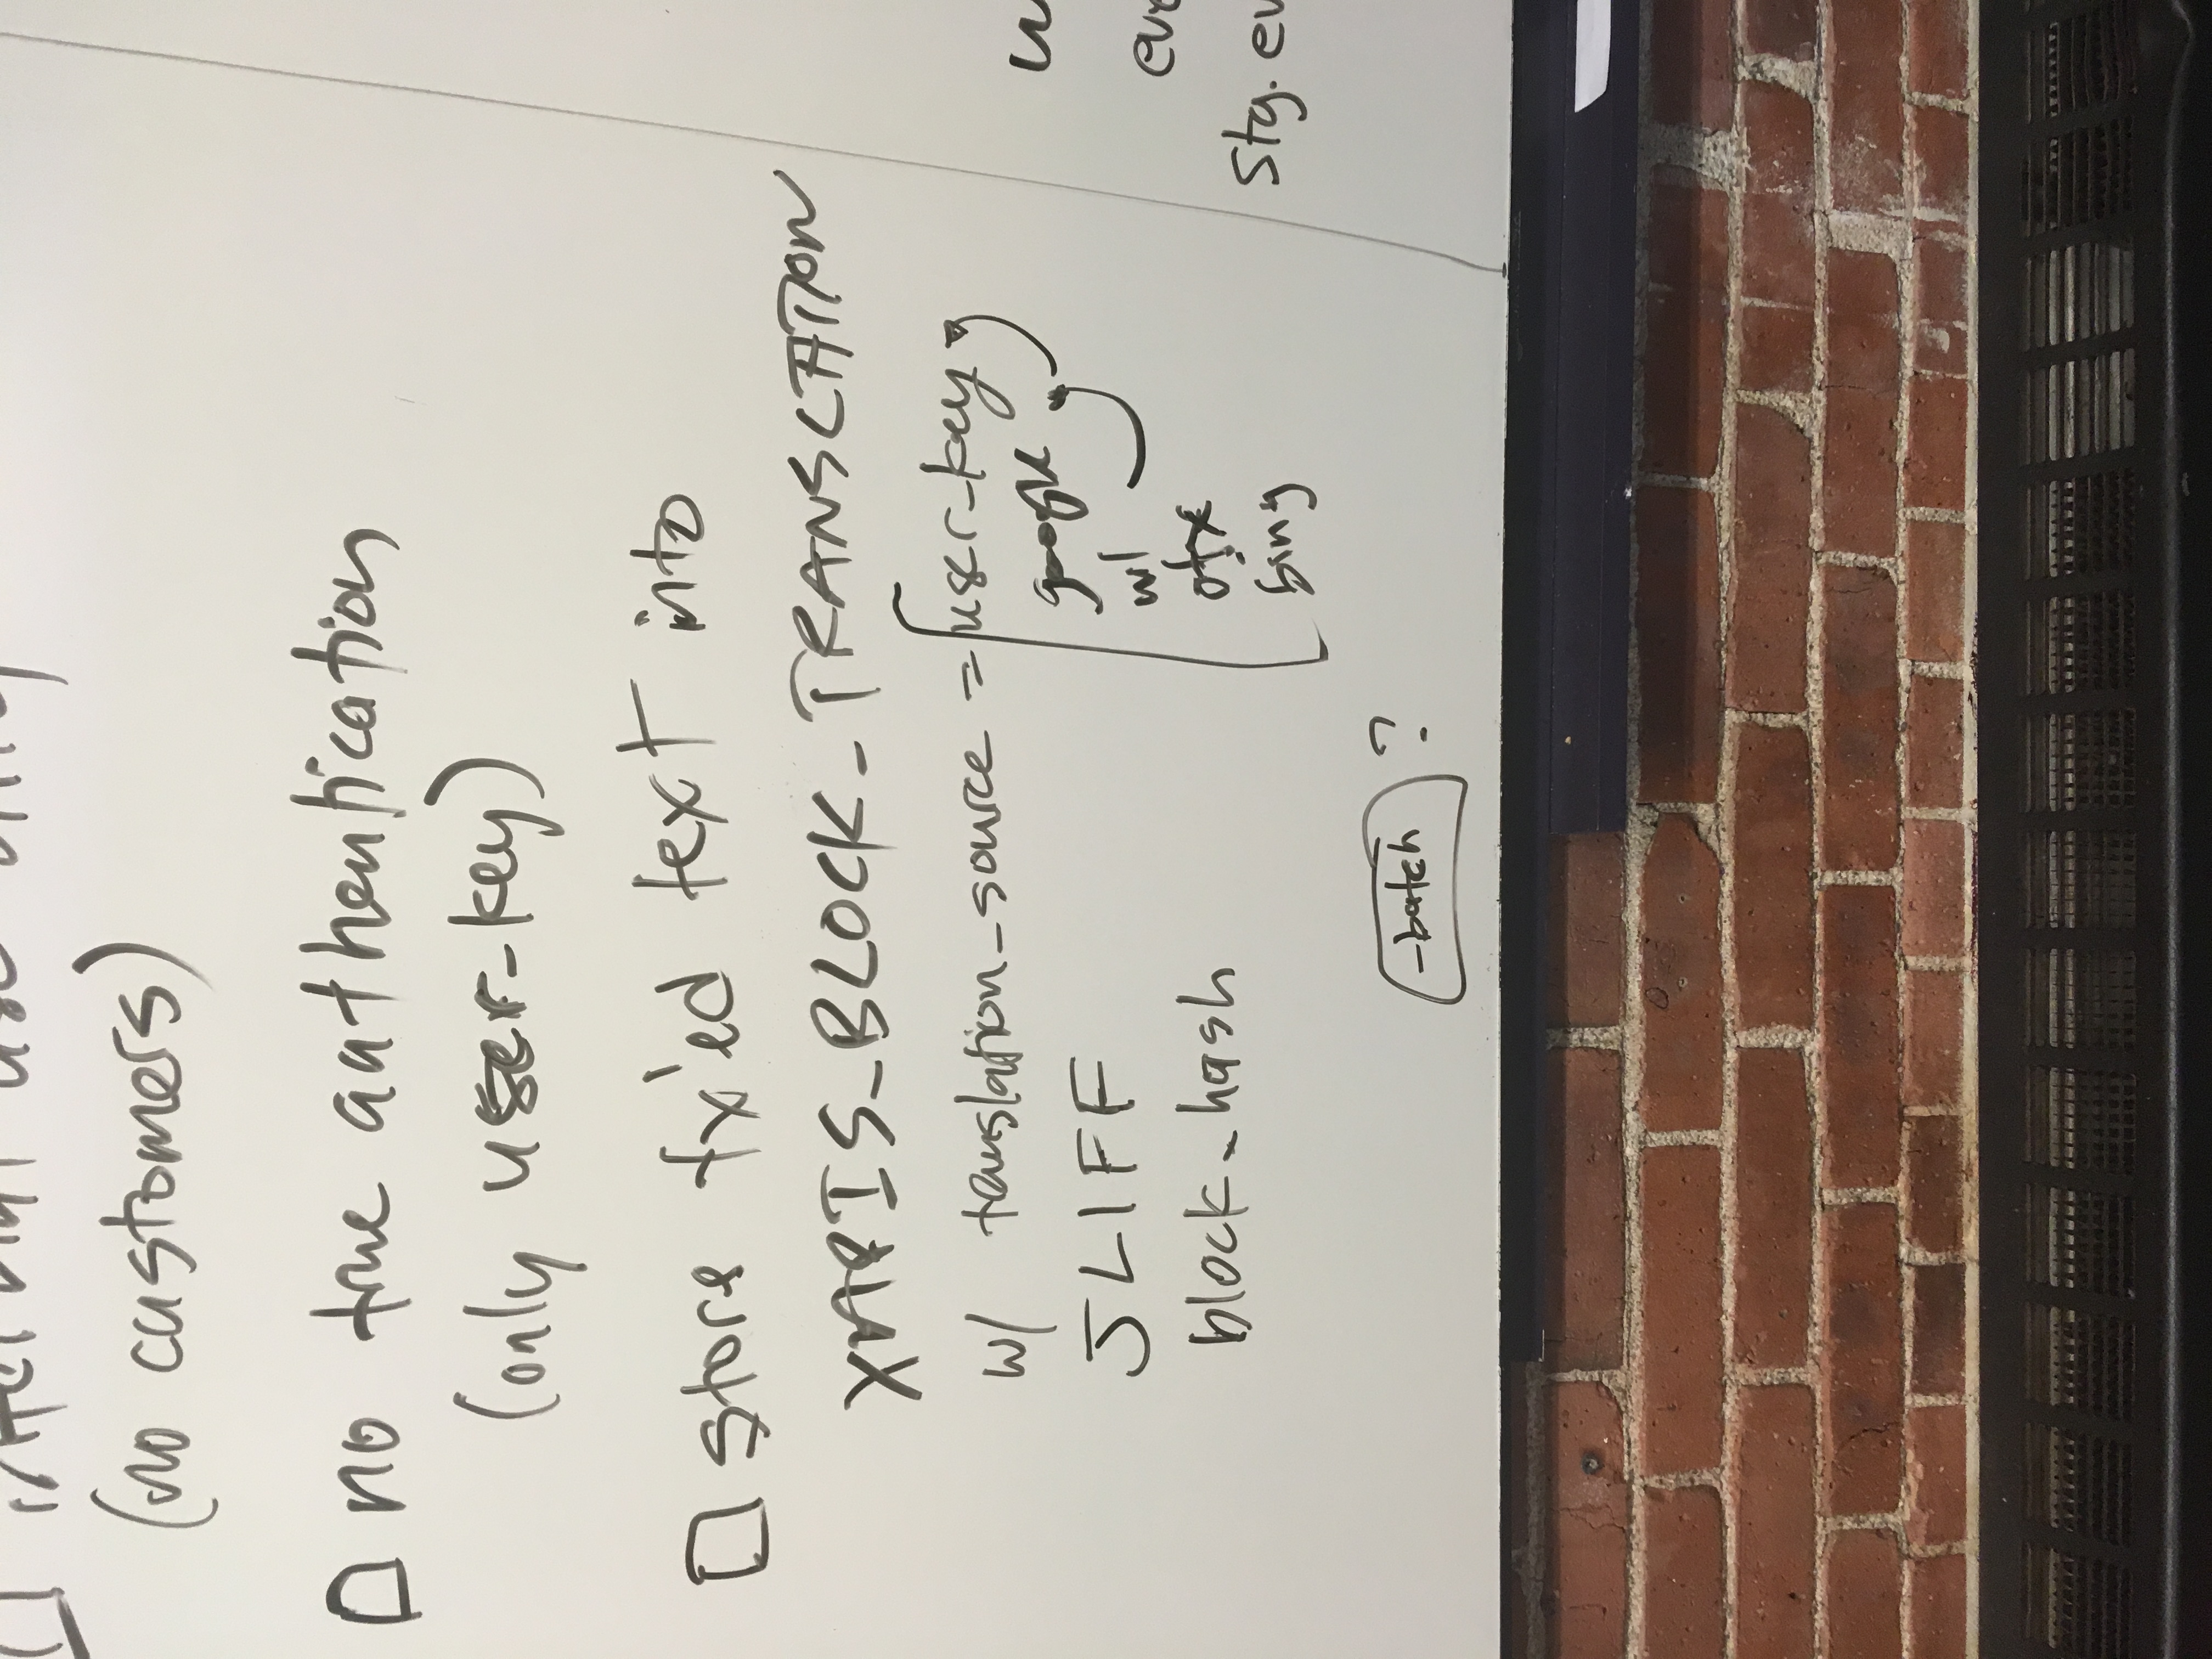 (no customers)
□ no true authentication
(only user-key)
□ store fix'ed text into
XAPIS_BLOCK_TRANSLATION
w/ translation_source = [user-key
google
w/
otjx
bing
JLIFF
block_hash
-batch ?
stg.ev